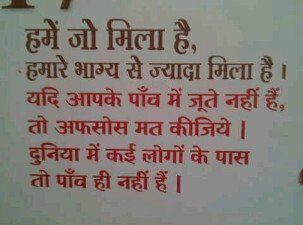 हमें जो मिला है,
हमारे भाग्य से ज्यादा मिला है ।
यदि आपके पाँव में जूते नहीं हैं,
तो अफसोस मत कीजिये |
दुनिया में कई लोगों के पास
तो पाँव ही नहीं हैं |